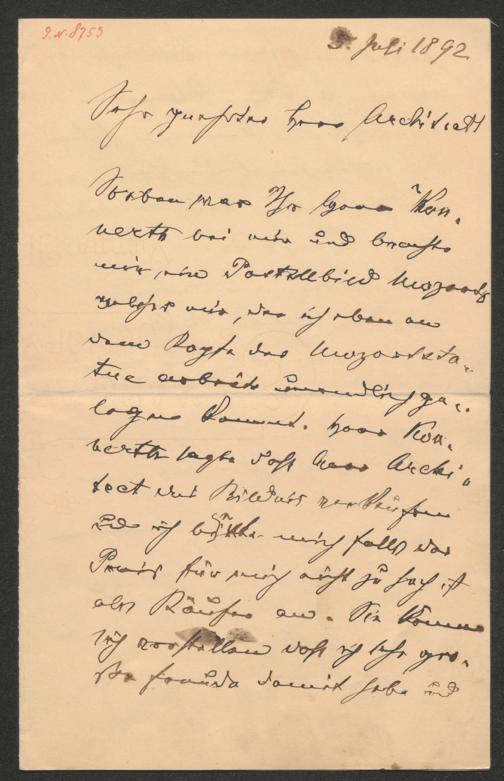 J.N. 8759
5. Juli 1892
Sehr geehrter Herr Architect
Soeben war Ihr Herr Kon-
werth bei mir und brachte
mir ein Portraitbild Mozarts
welches mir, der ich eben an
dem Kopfe der Mozartsta-
tue arbeite unendlich ge-
legen kommt. Herr Kon-
werth sagte daß Herr Archi-
tect das Bildnis verkaufen
und ich bitte mich falls der
Preis für mich nicht zu hoch ist
als Käufer an. Sie können
sich vorstellen daß ich sehr gro-
ße Freude damit habe und